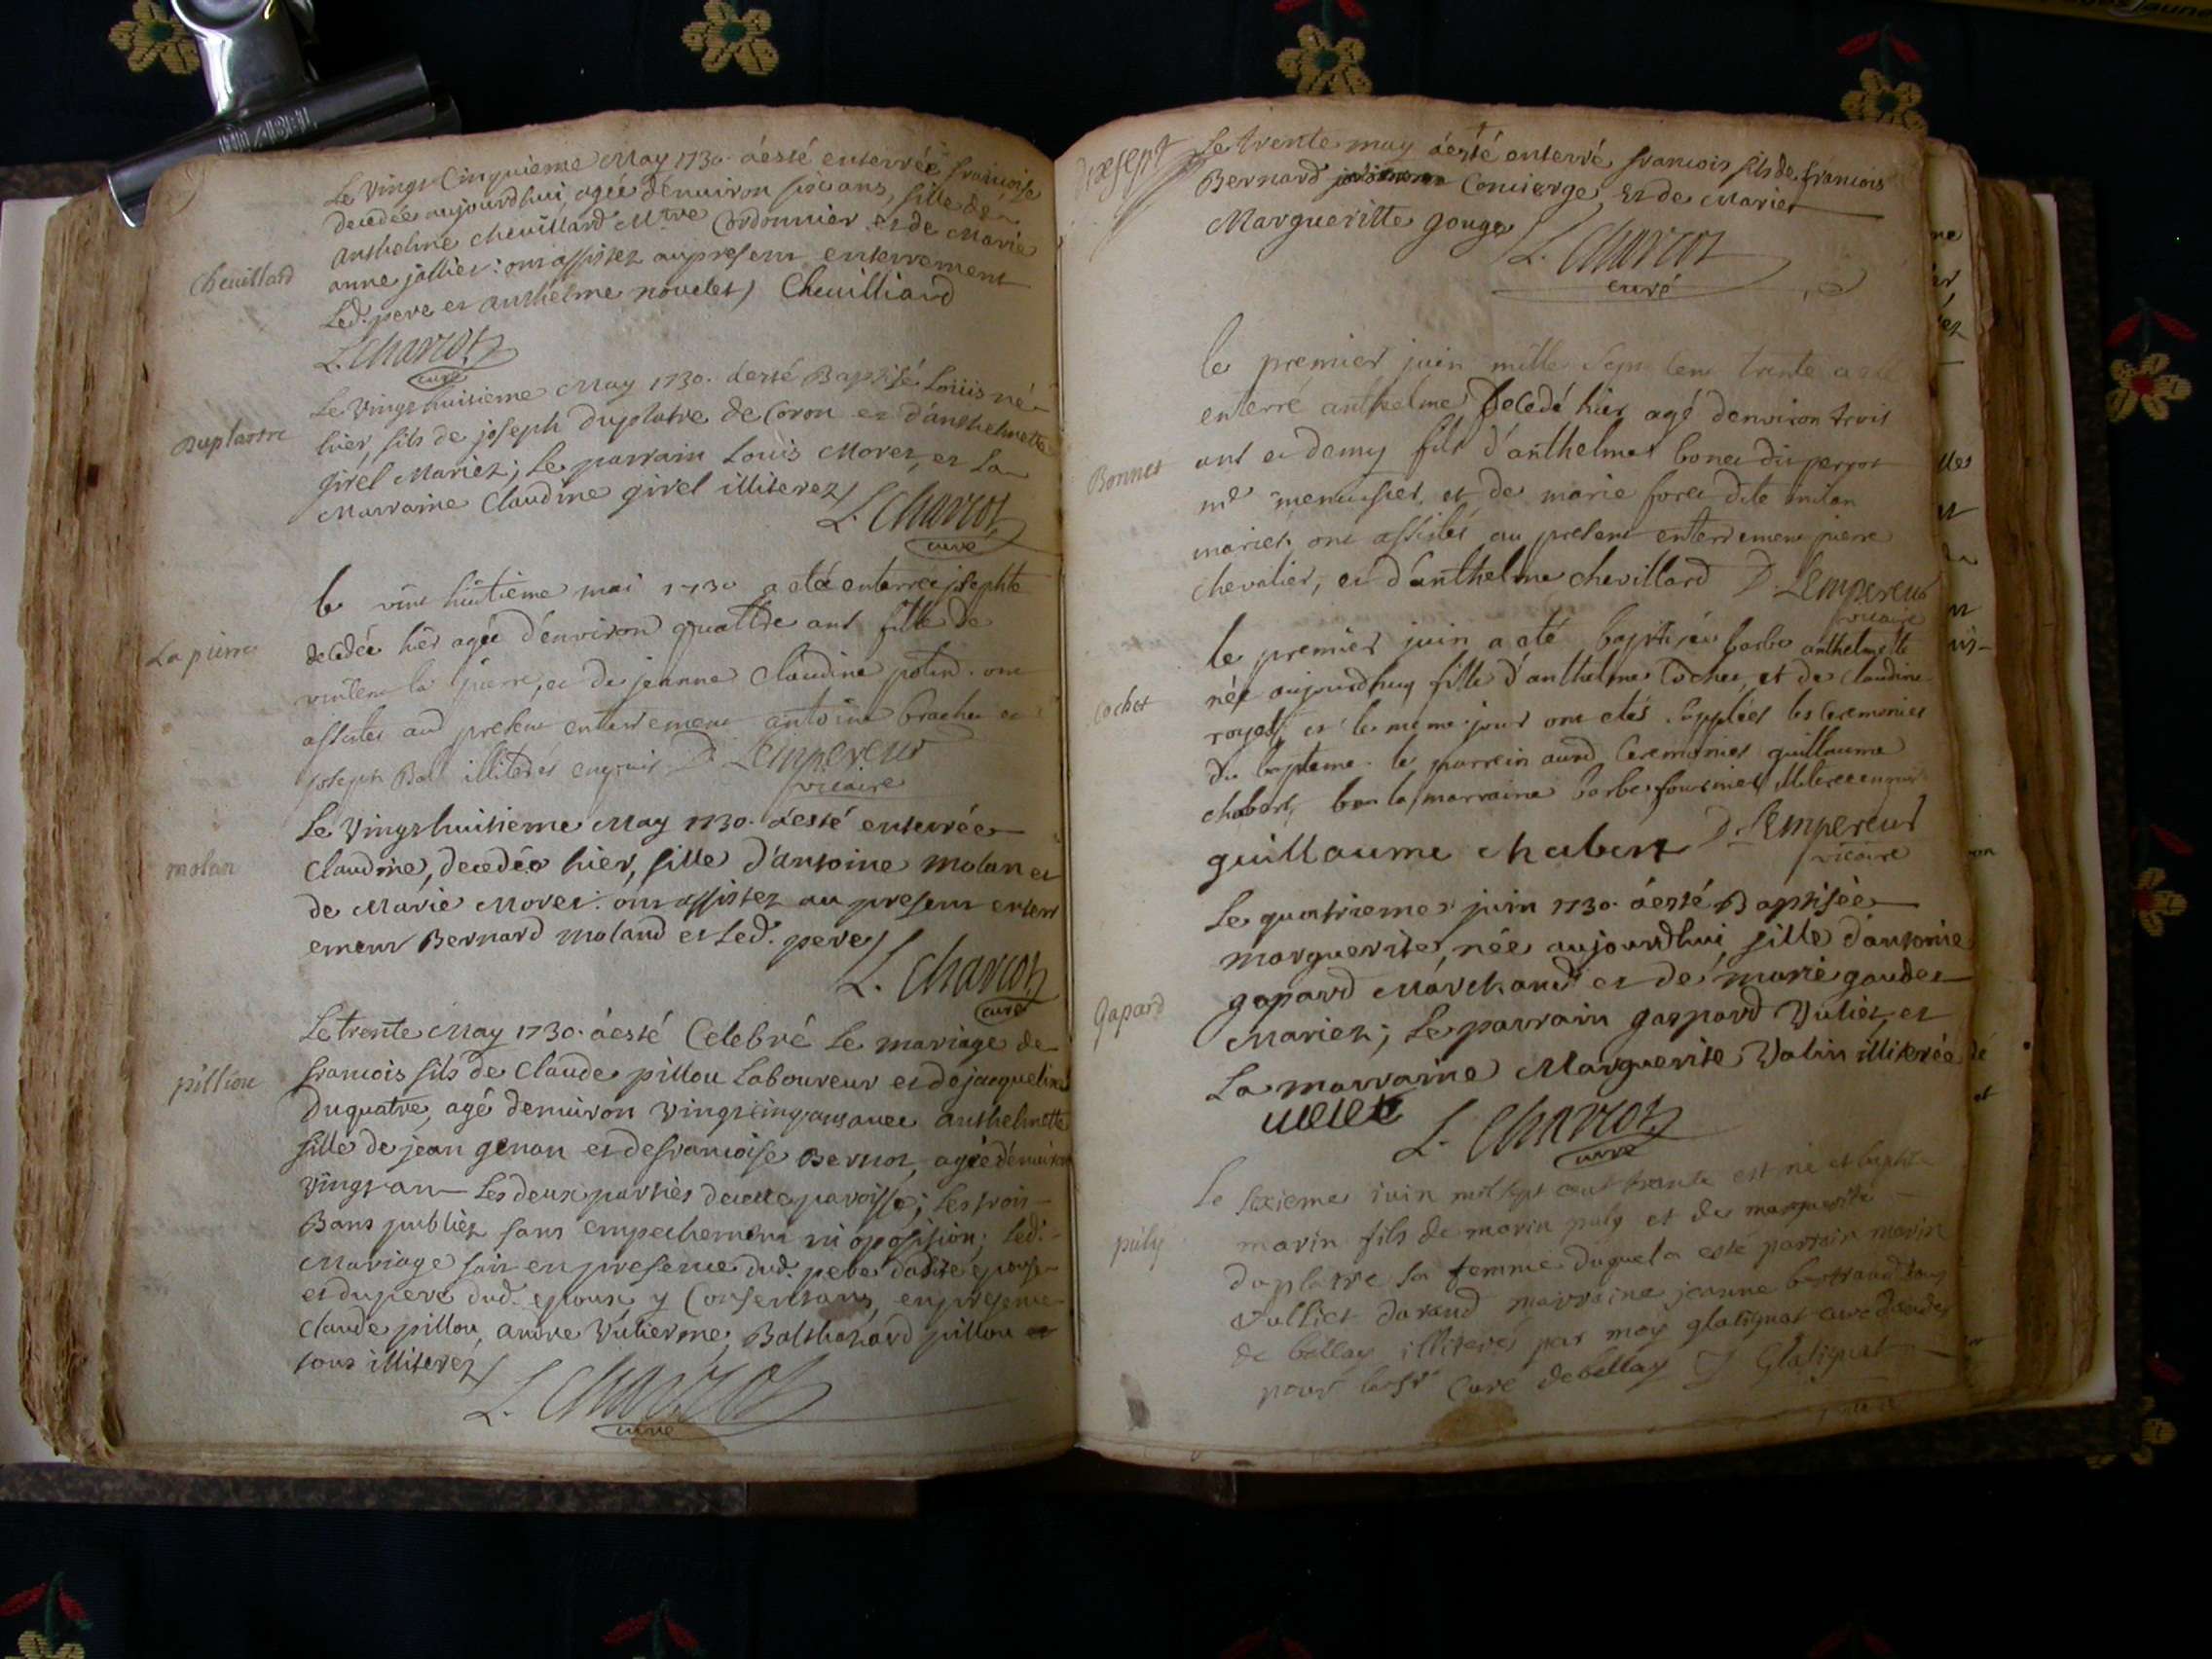 Le Vingt Cinquieme May 1730. à esté enterrée françoise
decedée aujourdhui, agée d'enuiron six ans, fille de
Anthelme cheuillard M.tre Cordonnier et de Marie
anne jallier: ont assistez au present enterrement
Led. pere et anthelme novelet Cheuilliard
L. Charcot
curé
cheuillard
Le Vingt huitieme May 1730. à esté Baptisé Loüis né
hier, fils de joseph Duplatre de Coron et d'anthelmette
girel Mariez; Le parrain Loüis Moret, et La
Marraine Claudine girel illiterez
L. Charcot
curé
Duplastre
le vint huitieme mai 1730 a eté enterrée josephte
decedée hier agée d'environ quattre ans fille de
la pierre, et de jeanne Claudine potin. ont
assistés aud present enterrement antoine brachet et
joseph Bal illiterés enquis D. Lempereur
vicaire
La pierre
Le Vingt huitieme May 1730. à esté enterrée
Claudine, decedée hier, fille d'antoine molan et
de Marie Moret. ont assistez au present enterr
ement Bernard moland et Led. pere
L. Charcot
curé
molan
Le trente May 1730. à esté Celebré Le mariage de
francois fils de Claude pillou Laboureur et de jacqueline
Duquatre, agé denuiron vingt cinq ans avec anthelmette
fille de jean genan et de francoise Bernot, agée d'enuiron
vingt an Les deux parties de cette paroisse; Les trois
Bans publiez sans empechement ni oposition; Led.
Mariage fait en presence dud. pere de ladite epouse
et du pere dud. epoux y Consentans, en presence
Claude pillou, andre Vulierme, Balthazard pillou et
tous illiterez
L. Charcot
curé
pilliou
dix sept
Le trente may à esté enterré francois fils de francois
Bernard Concierge, Et de Marie
Margueritte gouge
L. Charcot
curé
le premier juin mille Sept cent trente a eté
enterré anthelme Decedé hier agé denviron trois
ans et demy fils d'anthelme bonet du perron
m.e menuisier, et de marie foret dite milan
mariés ont assistés au present enterrement pierre
chevalier, et d'anthelme chevillard D. Lempereur
vicaire
Bonnet
le premier juin a eté baptisée barbe anthelmette
née aujourdhuy fille d'anthelme Cochet, et de Claudine
royet, et le meme jour ont etés supplées les Ceremonies
du bapteme. le parrein aud Ceremonies guillaume
chabert, la marraine barbe fournier illiteree enquis
guillaume chabert D. Lempereur
vicaire
Cochet
Le quatrieme juin 1730. à esté Baptisée
Marguerite, née aujourdhui, fille d'antoine
gapard Marchand et de marie gaudet
Mariez; Le parrain gaspard Vuliet, et
La marraine Marguerite Valin illiterée
L. Charcot
curé
Gapard
Le sixieme juin mil sept cent trente est né et baptisé
marin fils de marin puly et de marguerite
duplatre sa femme duquel a esté parrain marin
Vulliet durand marraine jeanne bertrand tous
de bellay illiterés par moy glatignat curé
pour le Sr Curé de bellay J Glatignat
puly